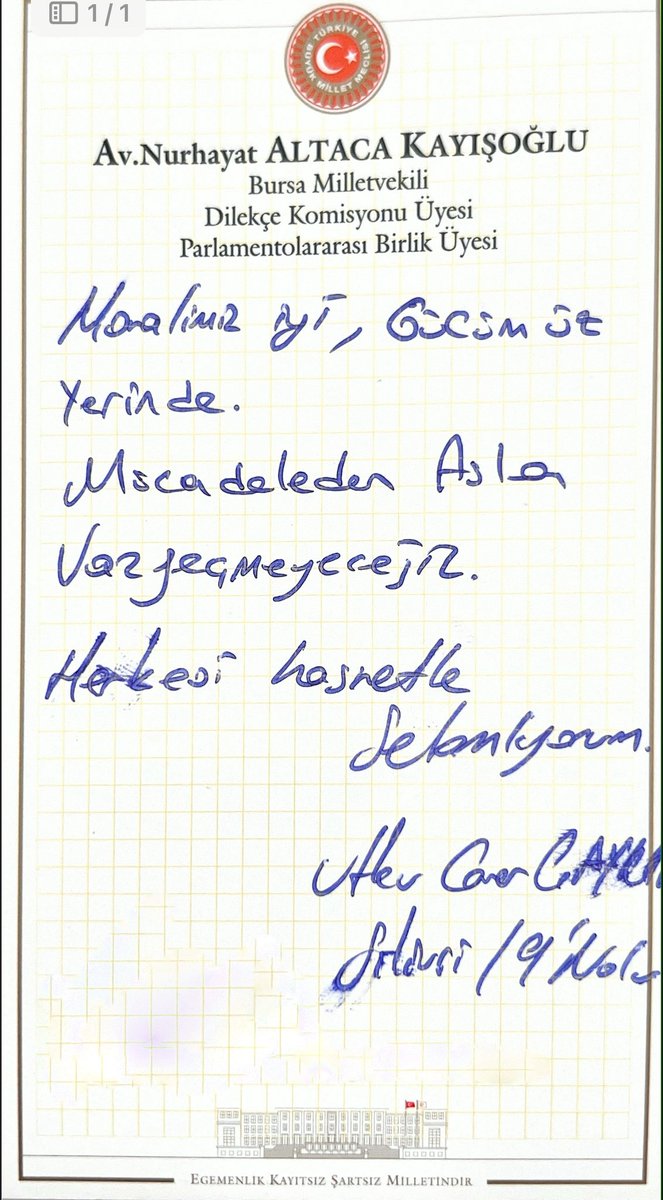 1/1
TÜRKİYE BÜYÜK MİLLET MECLİSİ
Av.Nurhayat ALTACA KAYIŞOĞLU
Bursa Milletvekili
Dilekçe Komisyonu Üyesi
Parlamentolararası Birlik Üyesi
Moralimiz iyi, Gücümüz
Yerinde.
Mücadeleden Asla
Vazgeçmeyeceğiz.
Herkesi hasretle
Selamlıyorum.
Silivri / 9 Nolu
EGEMENLİK KAYITSIZ ŞARTSIZ MİLLETİNDİR